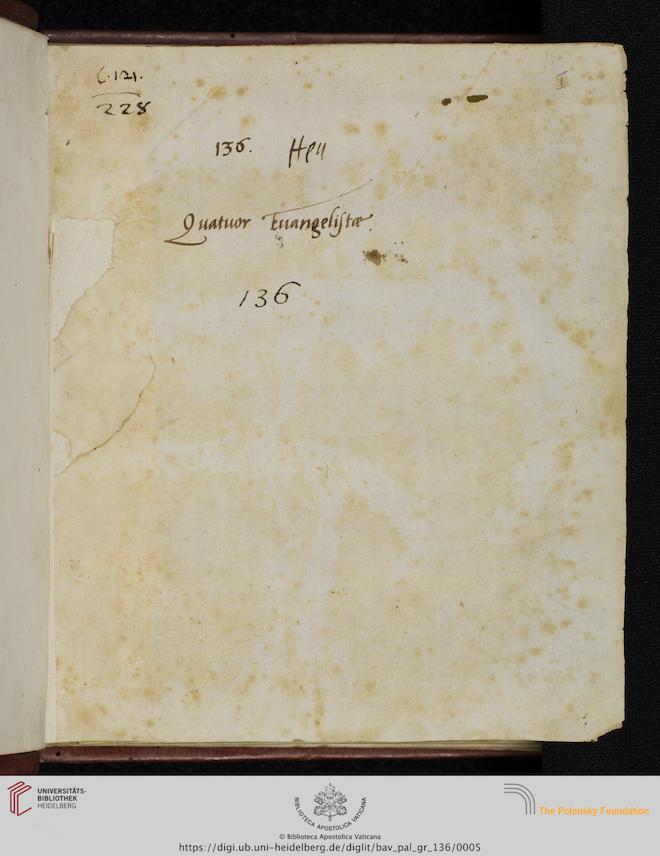 C. 121.
228
I
136. Hen
Quatuor Euangelistæ.
136
UNIVERSITÄTS-
BIBLIOTHEK
HEIDELBERG
BIBLIOTECA APOSTOLICA VATICANA
The Polonsky Foundation
© Biblioteca Apostolica Vaticana
https://digi.ub.uni-heidelberg.de/diglit/bav_pal_gr_136/0005